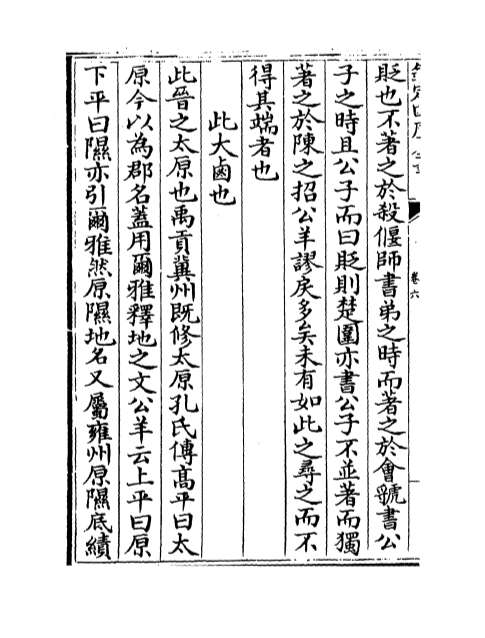 欽定四庫全書
卷六
貶也不著之於殺偃師書弟之時而著之於會虢書公
子之時且公子而曰貶則楚圍亦書公子不並著而獨
著之於陳之招公羊謬戾多矣未有如此之尋之而不
得其端者也
此大鹵也
此晉之太原也禹貢冀州既修太原孔氏傳高平曰太
原今以為郡名蓋用爾雅釋地之文公羊云上平曰原
下平曰隰亦引爾雅然原隰地名又屬雍州原隰底績